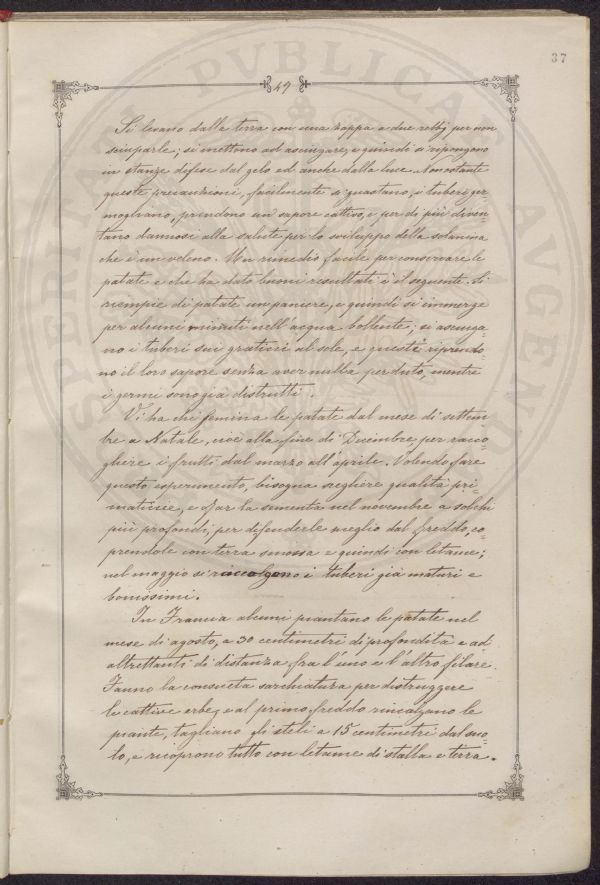 37
47
Si levano dalla terra con una zappa a due rebbj per non
sciuparle; si mettono ad asciugare, e quindi si ripongono
in stanze difese dal gelo ed anche dalla luce. Nonostante
queste precauzioni, facilmente si guastano, i tuberi ger=
mogliano, prendono un sapore cattivo, e per di più diven=
tano dannosi alla salute per lo sviluppo della solanina
che è un veleno. Un rimedio facile per conservare le
patate e che ha dato buoni resultati è il seguente. Si
riempie di patate un paniere, e quindi si immerge
per alcuni minuti nell'acqua bollente; si asciuga=
no i tuberi sui graticci al sole, e questi riprendo=
no il loro sapore senza aver nulla perduto, mentre
i germi sono già distrutti.
Vi ha chi semina le patate dal mese di settem
bre a Natale, cioè alla fine di Decembre, per racco=
gliere i frutti dal marzo all'aprile. Volendo fare
questo esperimento, bisogna scegliere qualità pri=
maticcie, e far la sementa nel novembre a solchi
più profondi, per difenderle meglio dal freddo, co=
prendole con terra smossa e quindi con letame;
nel maggio si raccolgono i tuberi già maturi e
bonissimi.
In Francia alcuni piantano le patate nel
mese di agosto, a 30 centimetri di profondità e ad
altrettanti di distanza fra l'uno e l'altro filare.
Fanno la consueta sarchiatura per distruggere
le cattive erbe, e al primo freddo rincalzano le
piante, tagliano gli steli a 15 centimetri dal suo=
lo, e ricoprono tutto con letame di stalla e terra.
PVBLICAE
AVGENDAE